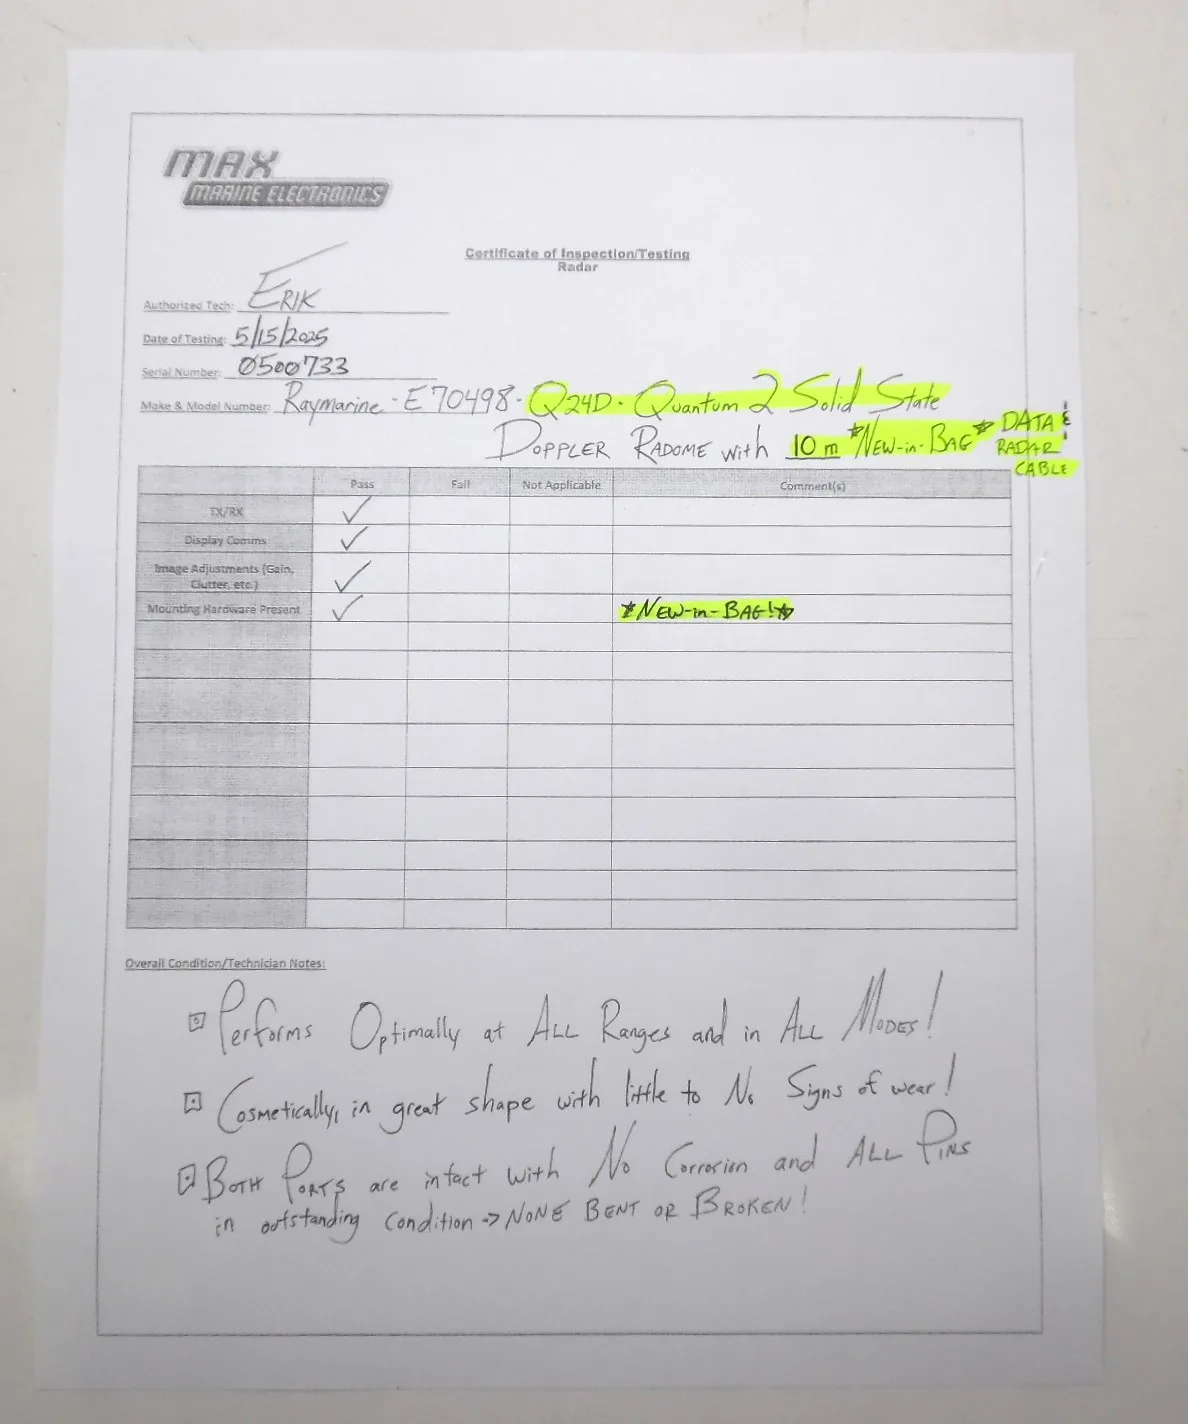 MAX
MARINE ELECTRONICS
Certificate of Inspection/Testing
Radar
Authorized Tech: ERIK
Date of Testing: 5/15/2025
Serial Number: 0500733
Make & Model Number: Raymarine - E70498 - Q24D - Quantum 2 Solid State
DOPPLER RADOME with 10 m *NEW-in-BAG* DATA &
RADAR
CABLE
Pass Fail Not Applicable Comment(s)
TX/RX ✓
Display Comms ✓
Image Adjustments (Gain,
Clutter, etc.) ✓
Mounting Hardware Present ✓ *NEW-in-BAG!*
Overall Condition/Technician Notes:
Performs Optimally at ALL Ranges and in ALL MODES!
Cosmetically, in great shape with little to No Signs of wear!
BOTH PORTS are intact with No Corrosion and ALL PINS
in outstanding condition -> NONE BENT OR BROKEN!